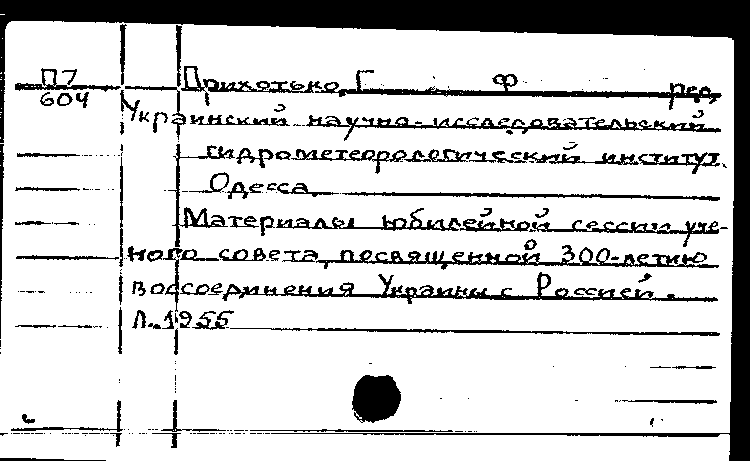 П7 Прихотько, Г. Ф. ред.
604
Украинский научно-исследовательский
гидрометеорологический институт.
Одесса.
Материалы юбилейной сессии уче-
ного совета, посвященной 300-летию
воссоединения Украины с Россией.
Л., 1955